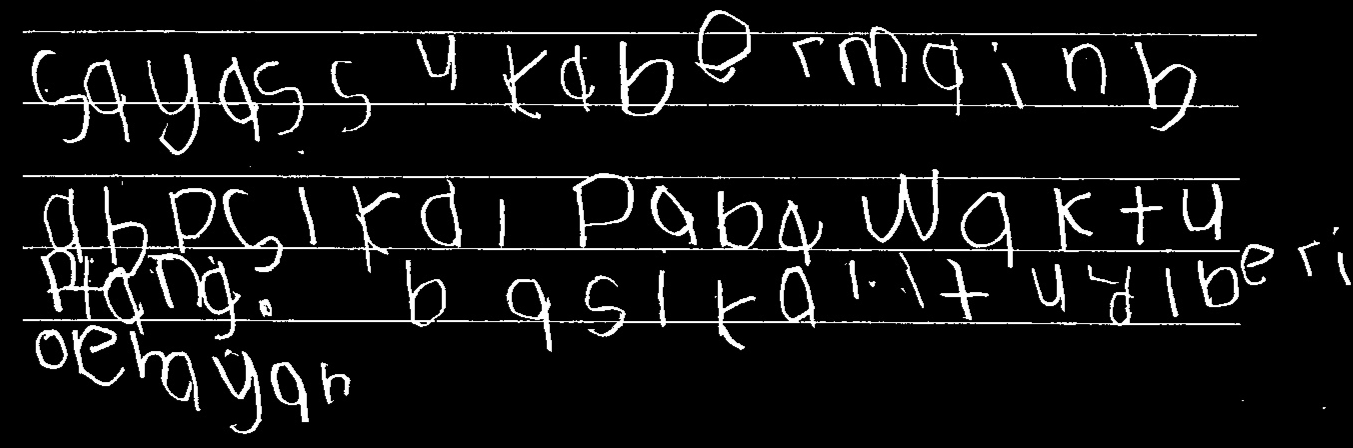 sayass ukabermainb
abpsikdi PabaWaktu
Ptang. basikaiitudiberi
oehayan